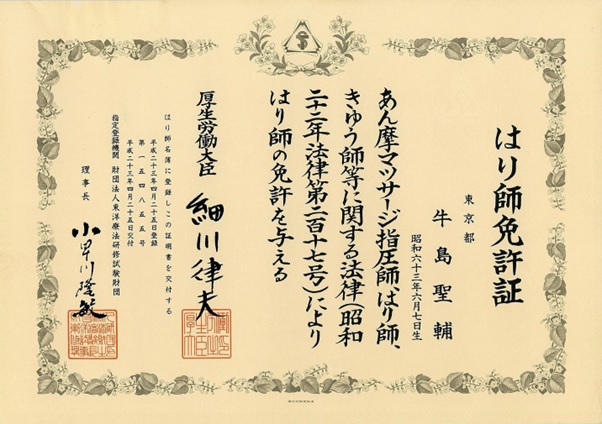 はり師免許証
東京都
牛島聖輔
昭和六十三年六月七日生
あん摩マツサージ指圧師、はり師、
きゆう師等に関する法律(昭和
二十二年法律第二百十七号)により
はり師の免許を与える
厚生労働大臣 細川律夫
はり師名簿に登録しこの証明書を交付する
平成二十三年四月二十五日登録
第一五四八五五号
平成二十三年四月二十五日交付
指定登録機関 財団法人東洋療法研修試験財団
理事長 小早川隆敏